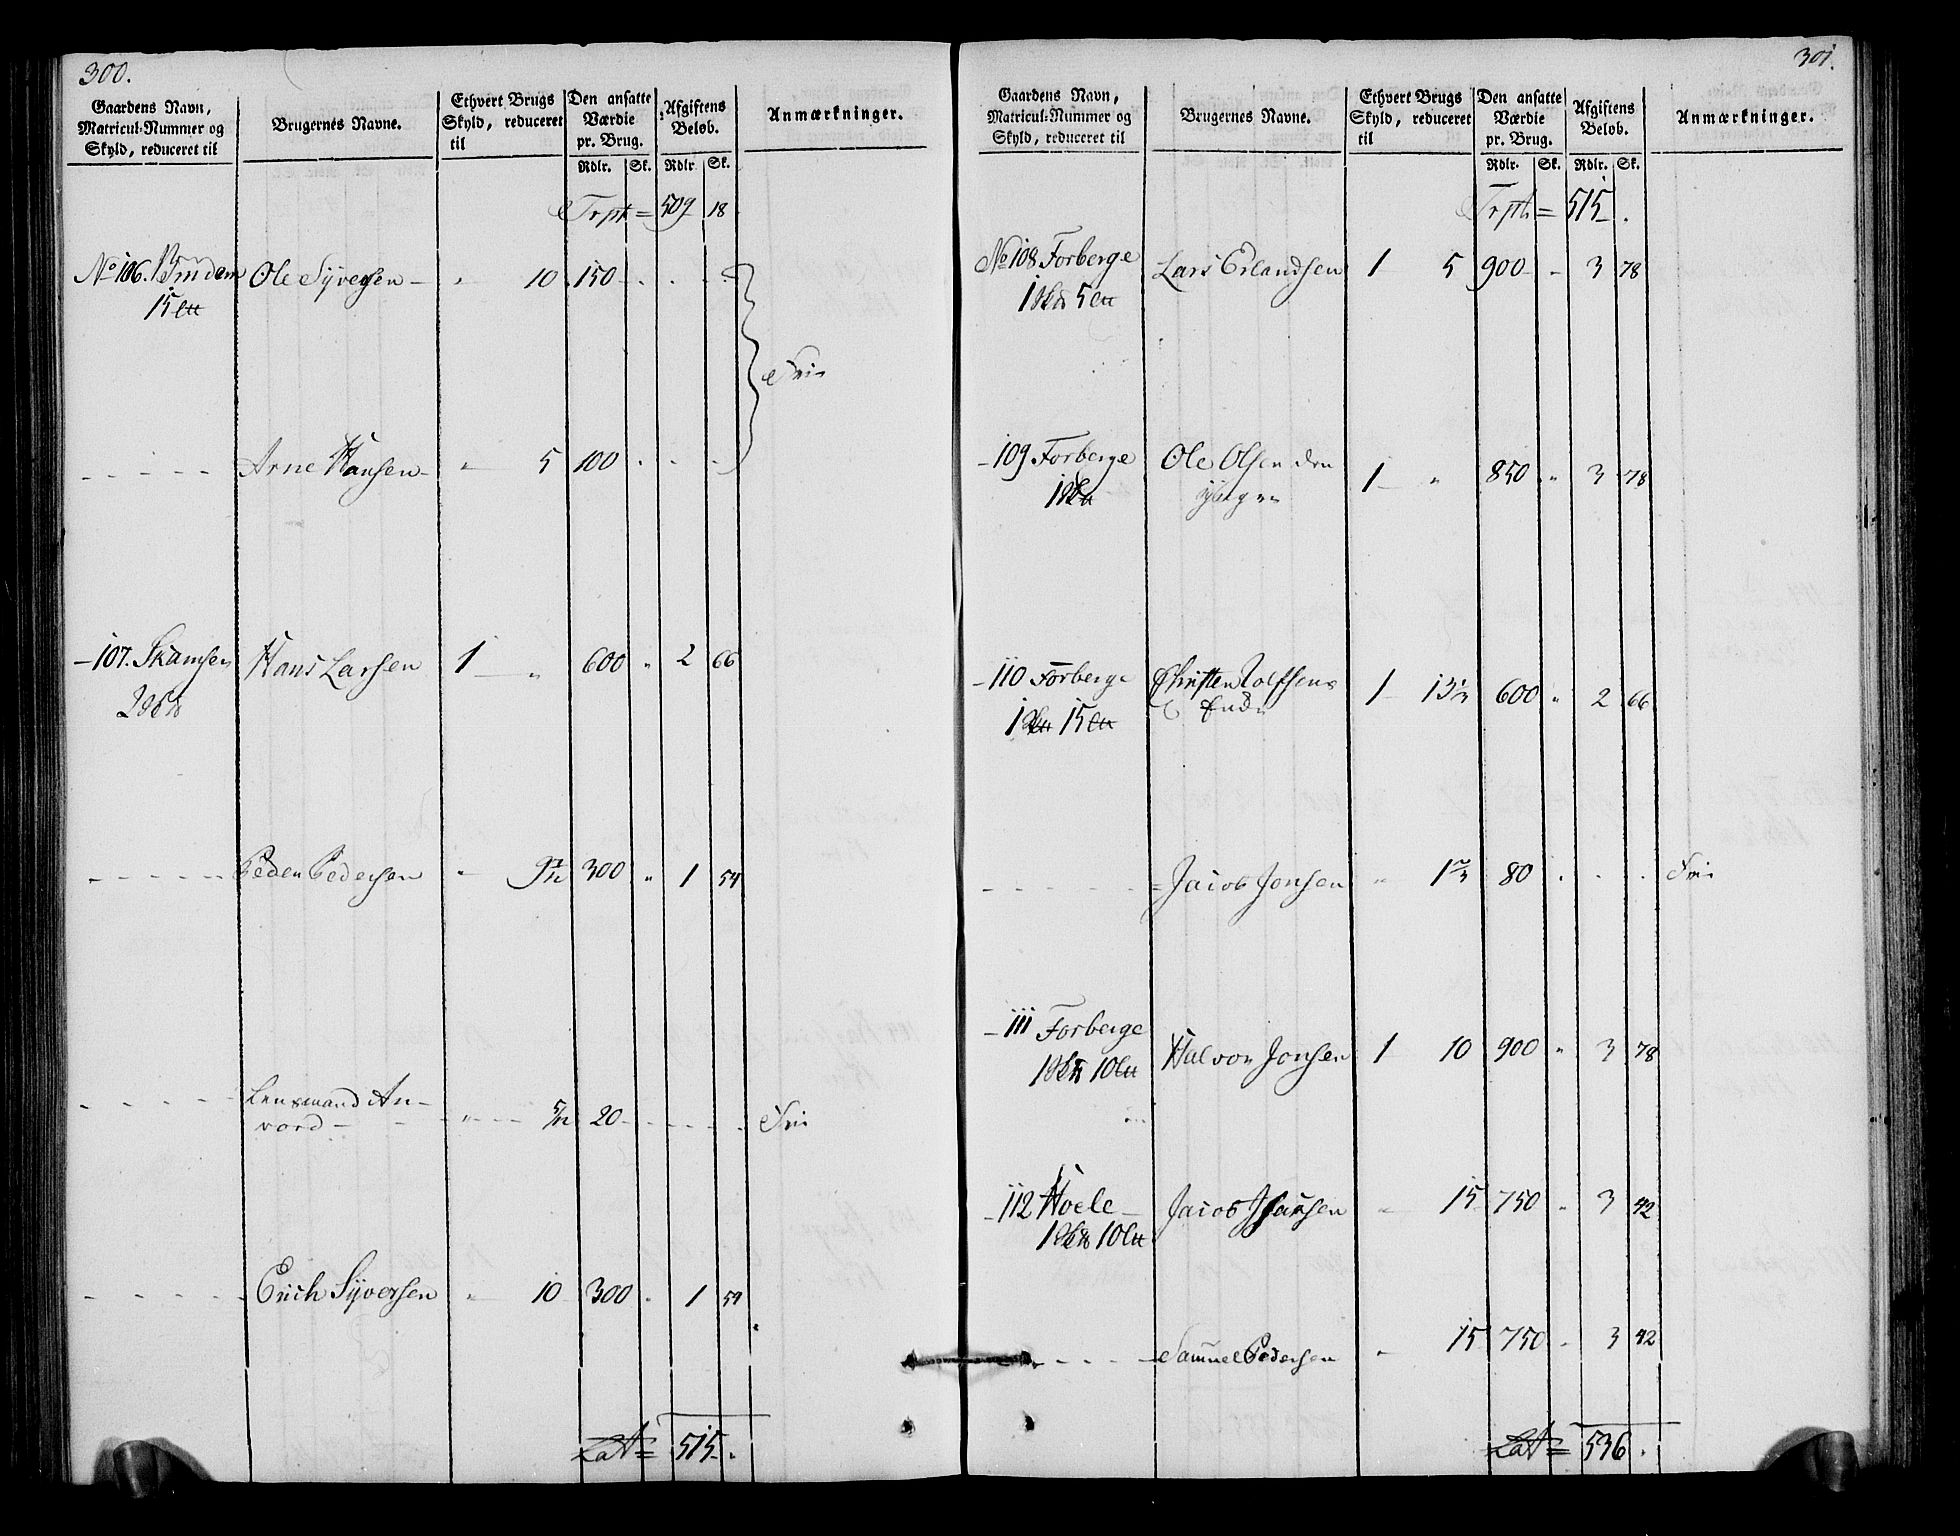 300.
Gaardens Navn, Matricul-Nummer og Skyld, reduceret til
Brugernes Navne.
Ethvert Brugs Skyld, reduceret til
Den ansatte Værdie pr. Brug.
Afgiftens Beløb.
Anmærkninger.
Rdlr. Sk. Rdlr Sk.
Trpt = 509 18
No 106. Ole Syversen - " 10 150 - . . .
15 Lit
Fri
Arne Hansen - " 5 100 . . .
- 107. Skamsen Hans Larsen 1 " 600 " 2 66
2
Peder Pedersen " 300 " 1 54
Lensmand An-
vord - " 5/12 20 - - - Fri
Erich Syversen " 10 300 " 1 54
Lat = 515 - .
301.
Gaardens Navn, Matricul-Nummer og Skyld, reduceret til
Brugernes Navne.
Ethvert Brugs Skyld, reduceret til
Den ansatte Værdie pr. Brug.
Afgiftens Beløb.
Anmærkninger.
Rdlr. Sk. Rdlr. Sk.
Trpt = 515 .
No 108 Forberge Lars Erlandsen 1 5 900 - 3 78
1 5
- 109 Forberge Ole Olsen den
1 yngre 1 " 850 " 3 78
- 110 Forberge Christen Rolfsens
1 15 Enke 1 13 1/3 600 " 2 66
Jacob Jonsen " 1 2/3 80 . . . Fri
- 111 Forberge
1 10 Halvor Jonsen 1 10 900 " 3 78
- 112 Hoele - Jacob " 15 750 " 3 42
1 10
Samuel Pedersen " 15 750 - 3 42
Lat = 536 .